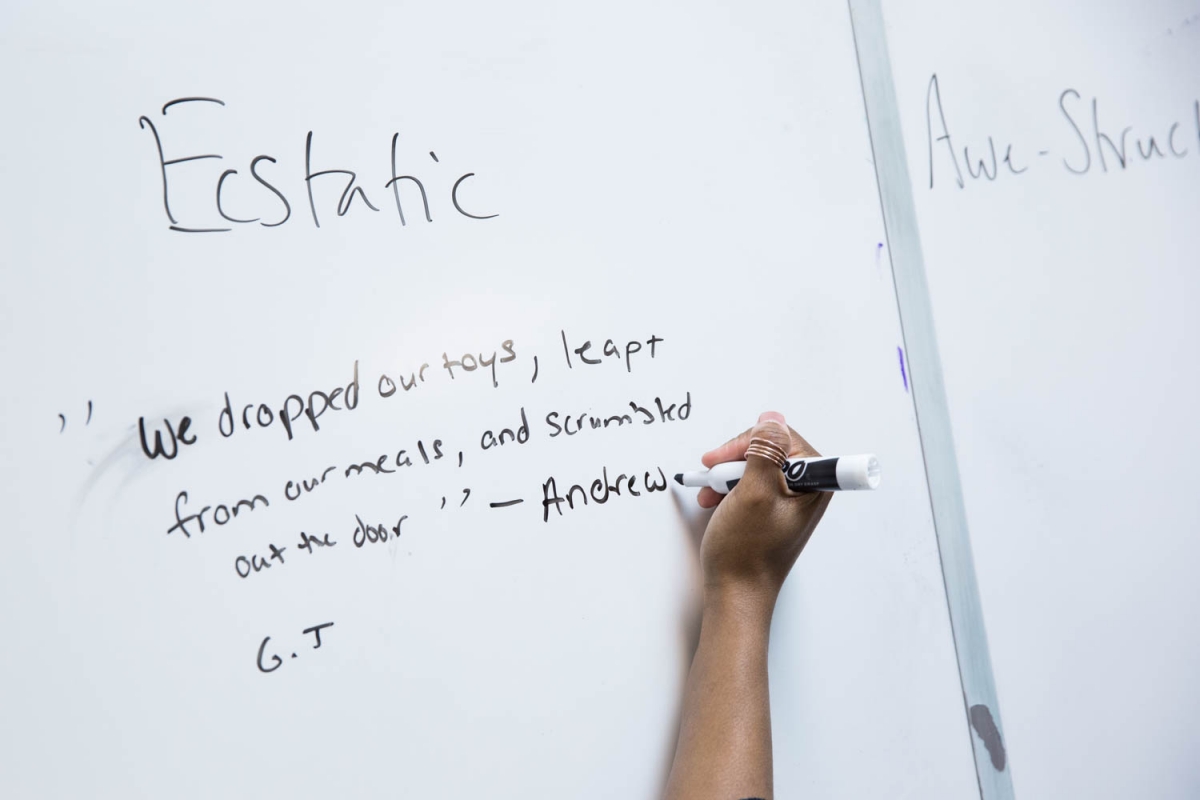 Ecstatic
Awe-Struc
,, We dropped our toys, leapt
from our meals, and scrumbled
out the door ,, – Andrew
G.J